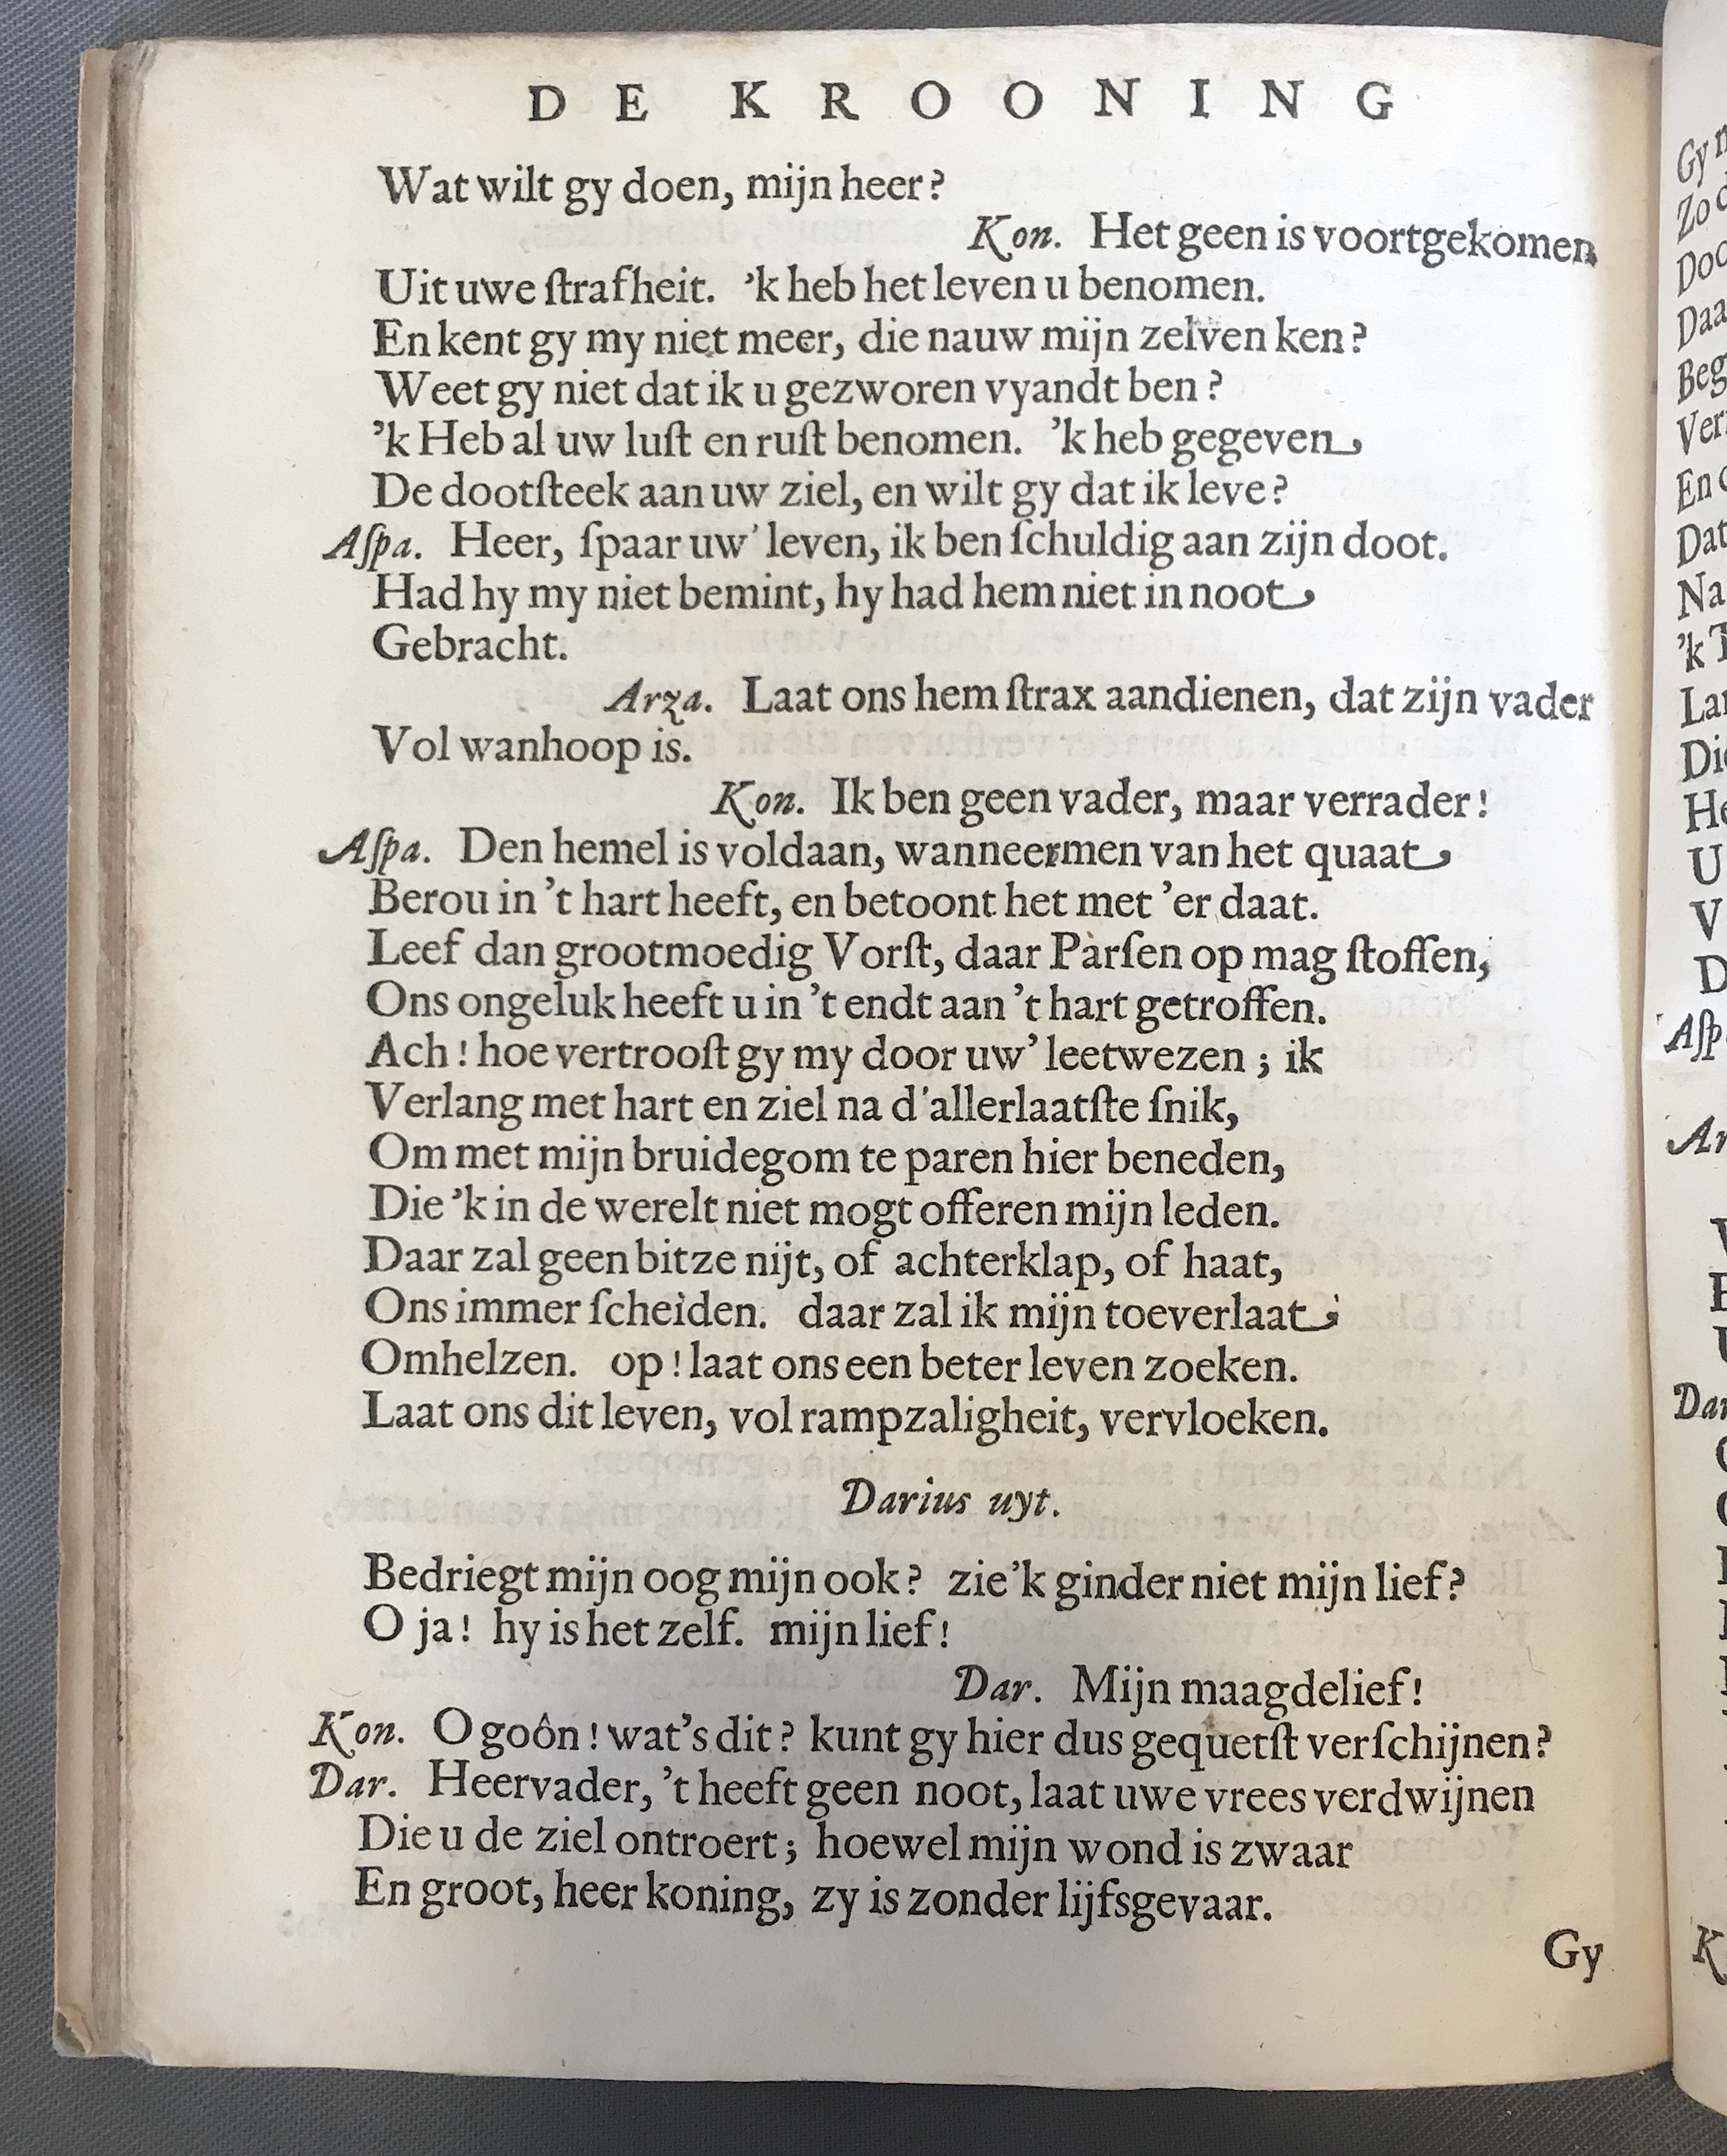 DE KROONING
Wat wilt gy doen, mijn heer?
Kon. Het geen is voortgekomen
Uit uwe ſtrafheit. 'k heb het leven u benomen.
En kent gy my niet meer, die nauw mijn zelven ken?
Weet gy niet dat ik u gezworen vyandt ben?
'k Heb al uw luſt en ruſt benomen. 'k heb gegeven
De dootſteek aan uw ziel, en wilt gy dat ik leve?
Aſpa. Heer, ſpaar uw' leven, ik ben ſchuldig aan zijn doot.
Had hy my niet bemint, hy had hem niet in noot
Gebracht.
Arza. Laat ons hem ſtrax aandienen, dat zijn vader
Vol wanhoop is.
Kon. Ik ben geen vader, maar verrader!
Aſpa. Den hemel is voldaan, wanneermen van het quaat
Berou in 't hart heeft, en betoont het met 'er daat.
Leef dan grootmoedig Vorſt, daar Parſen op mag ſtoffen,
Ons ongeluk heeft u in 't endt aan 't hart getroffen.
Ach! hoe vertrooſt gy my door uw' leetwezen; ik
Verlang met hart en ziel na d'allerlaatſte ſnik,
Om met mijn bruidegom te paren hier beneden,
Die 'k in de werelt niet mogt offeren mijn leden.
Daar zal geen bitze nijt, of achterklap, of haat,
Ons immer ſcheiden. daar zal ik mijn toeverlaat
Omhelzen. op! laat ons een beter leven zoeken.
Laat ons dit leven, vol rampzaligheit, vervloeken.
Darius uyt.
Bedriegt mijn oog mijn ook? zie'k ginder niet mijn lief?
O ja! hy is het zelf. mijn lief!
Dar. Mijn maagdelief!
Kon. O goôn! wat's dit? kunt gy hier dus gequetſt verſchijnen?
Dar. Heervader, 't heeft geen noot, laat uwe vrees verdwijnen
Die u de ziel ontroert; hoewel mijn wond is zwaar
En groot, heer koning, zy is zonder lijfsgevaar.
Gy